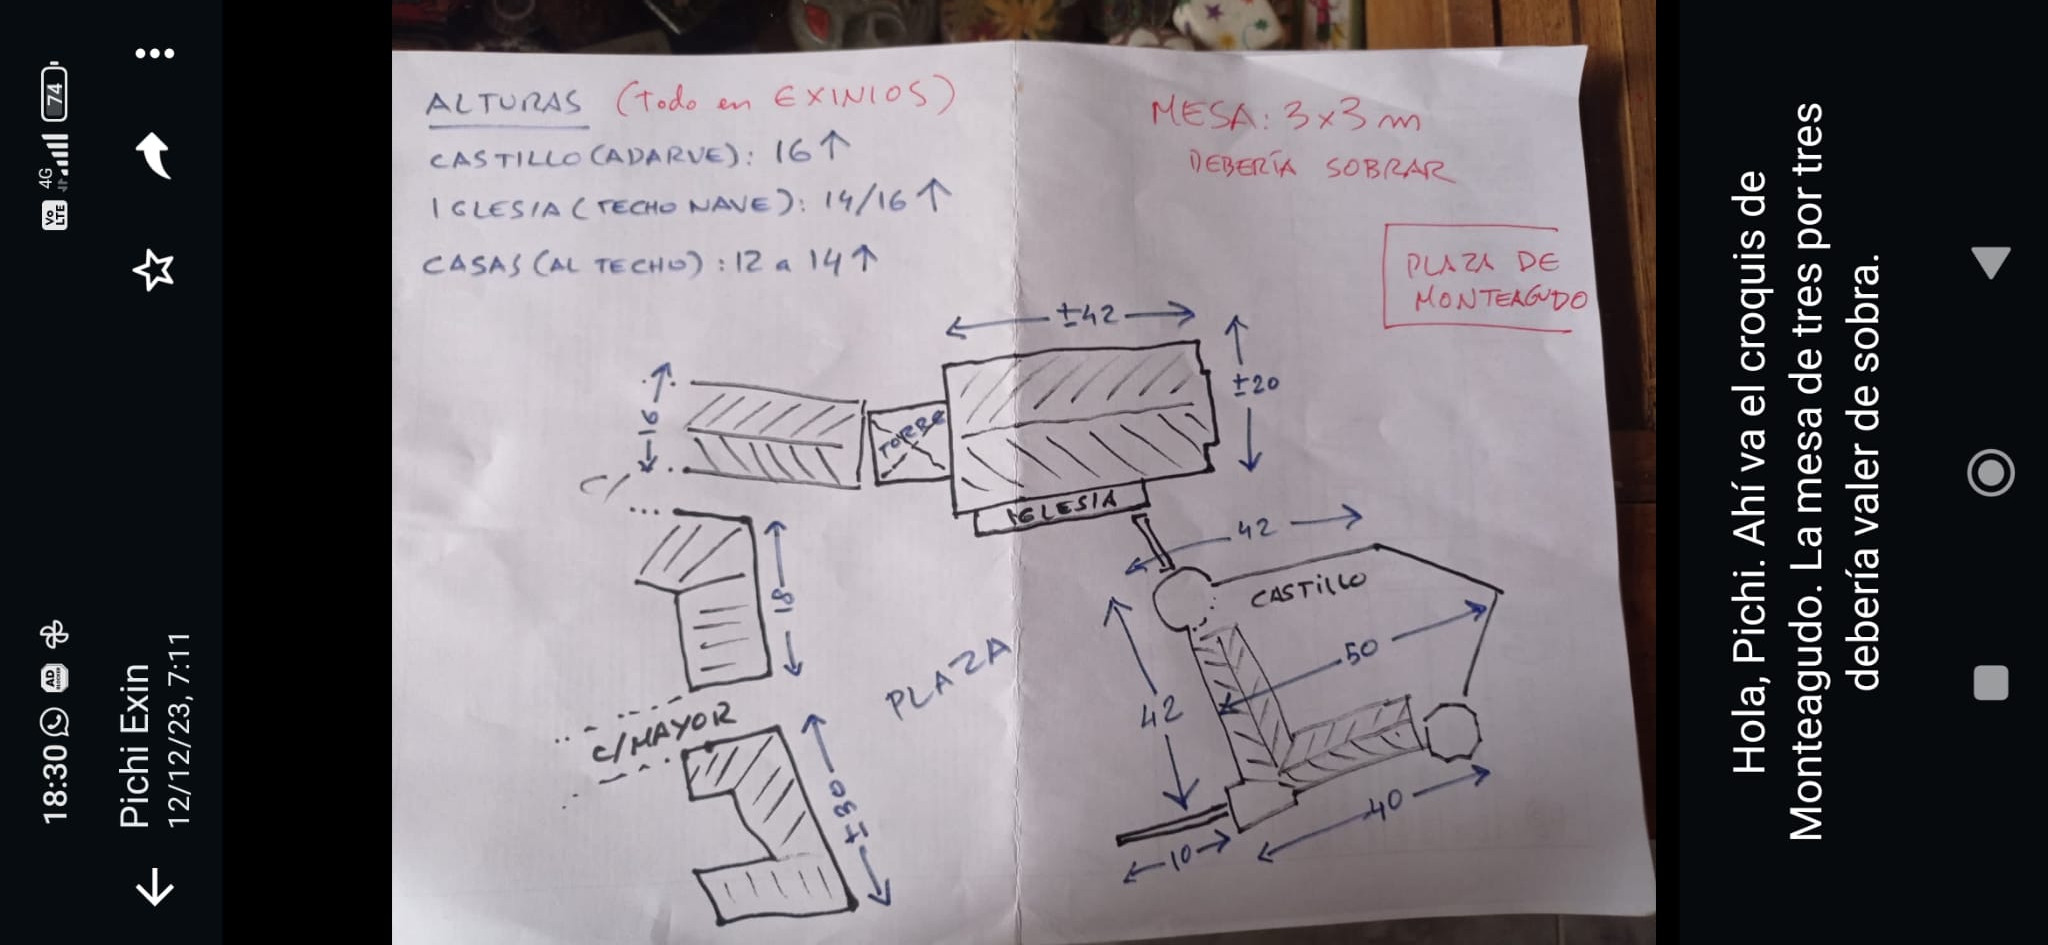 18:30
Vo
LTE
4G
74
Pichi Exin
12/12/23, 7:11
ALTURAS (Todo en EXINIOS)
CASTILLO (ADARVE): 16↑
IGLESIA (TECHO NAVE): 14/16↑
CASAS (AL TECHO): 12 a 14↑
MESA: 3x3 m
DEBERÍA SOBRAR
PLAZA DE
MONTEAGUDO
±42
±20
16
TORRE
IGLESIA
C/
18
C/MAYOR
±30
PLAZA
42
CASTILLO
50
42
10
40
Hola, Pichi. Ahí va el croquis de
Monteagudo. La mesa de tres por tres
debería valer de sobra.